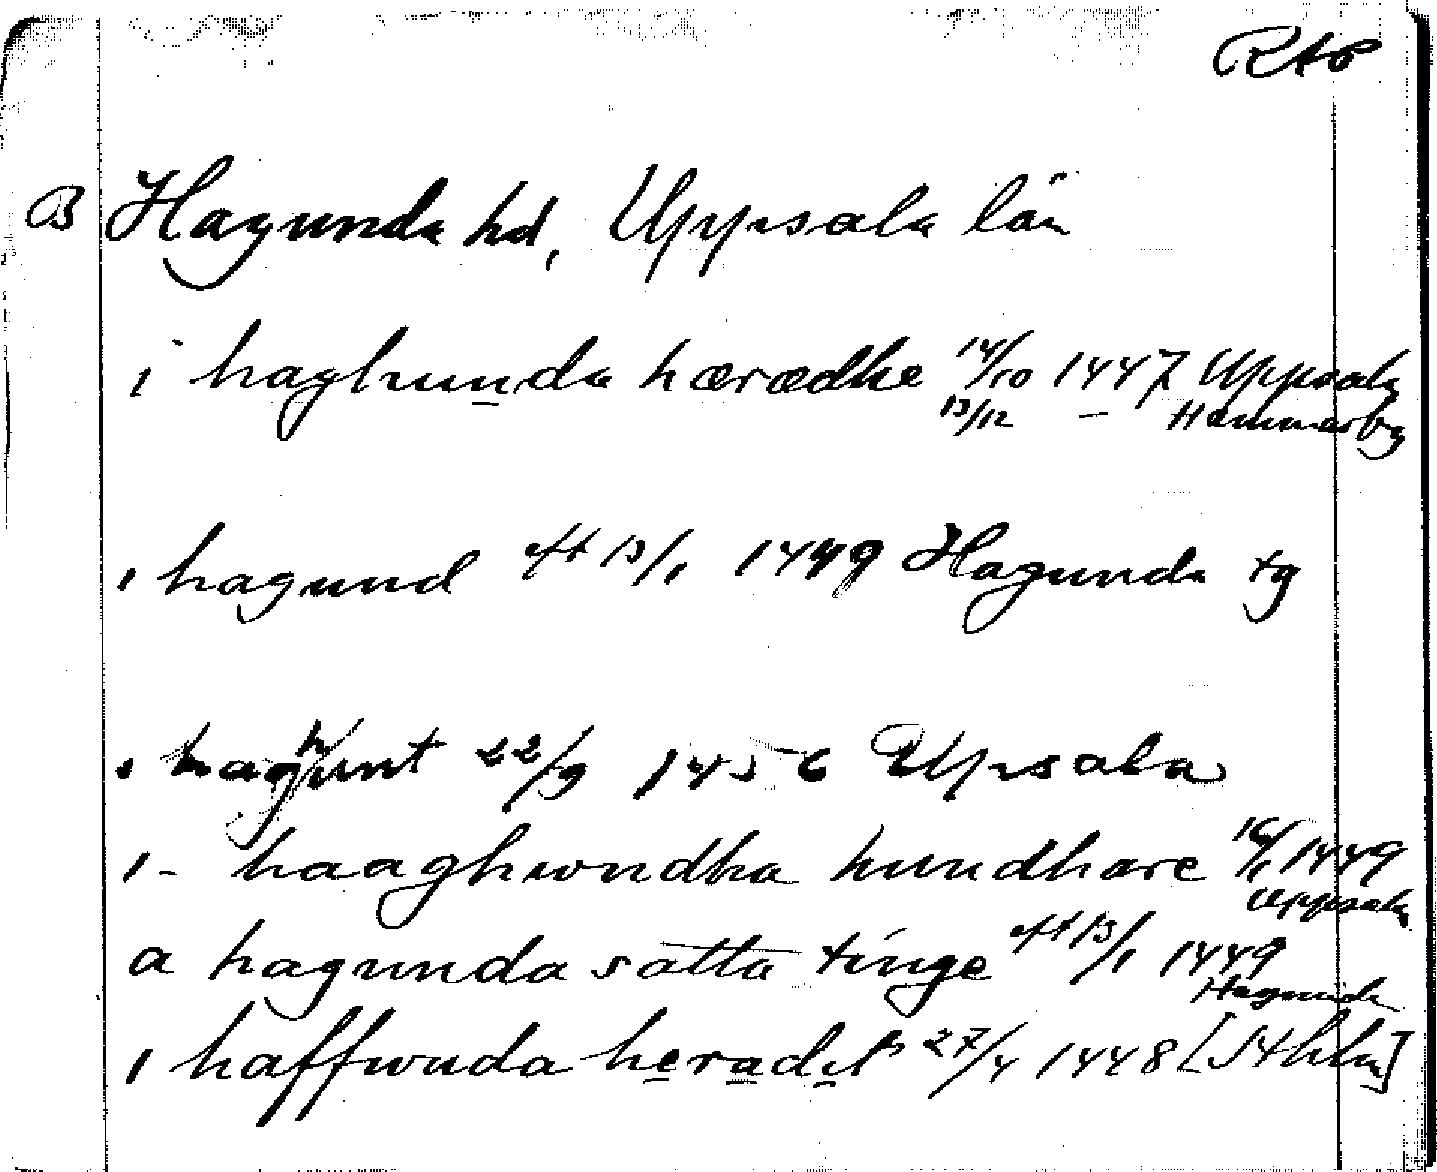 RAp
B Hagunda hd, Uppsala län
i haghunda hæradhe 14/10 1447 Uppsala
13/12 – Hammarby
i hagund eft 13/1 1449 Hagunda tg
i haghunt 22/9 1456 Upsala
i - haaghwndha hundhare 16/1 1449
Uppsala
a hagunda satta tinge eft 13/1 1449
Hagunda
i haffwnda heradit 27/4 1448 [Sthlm]